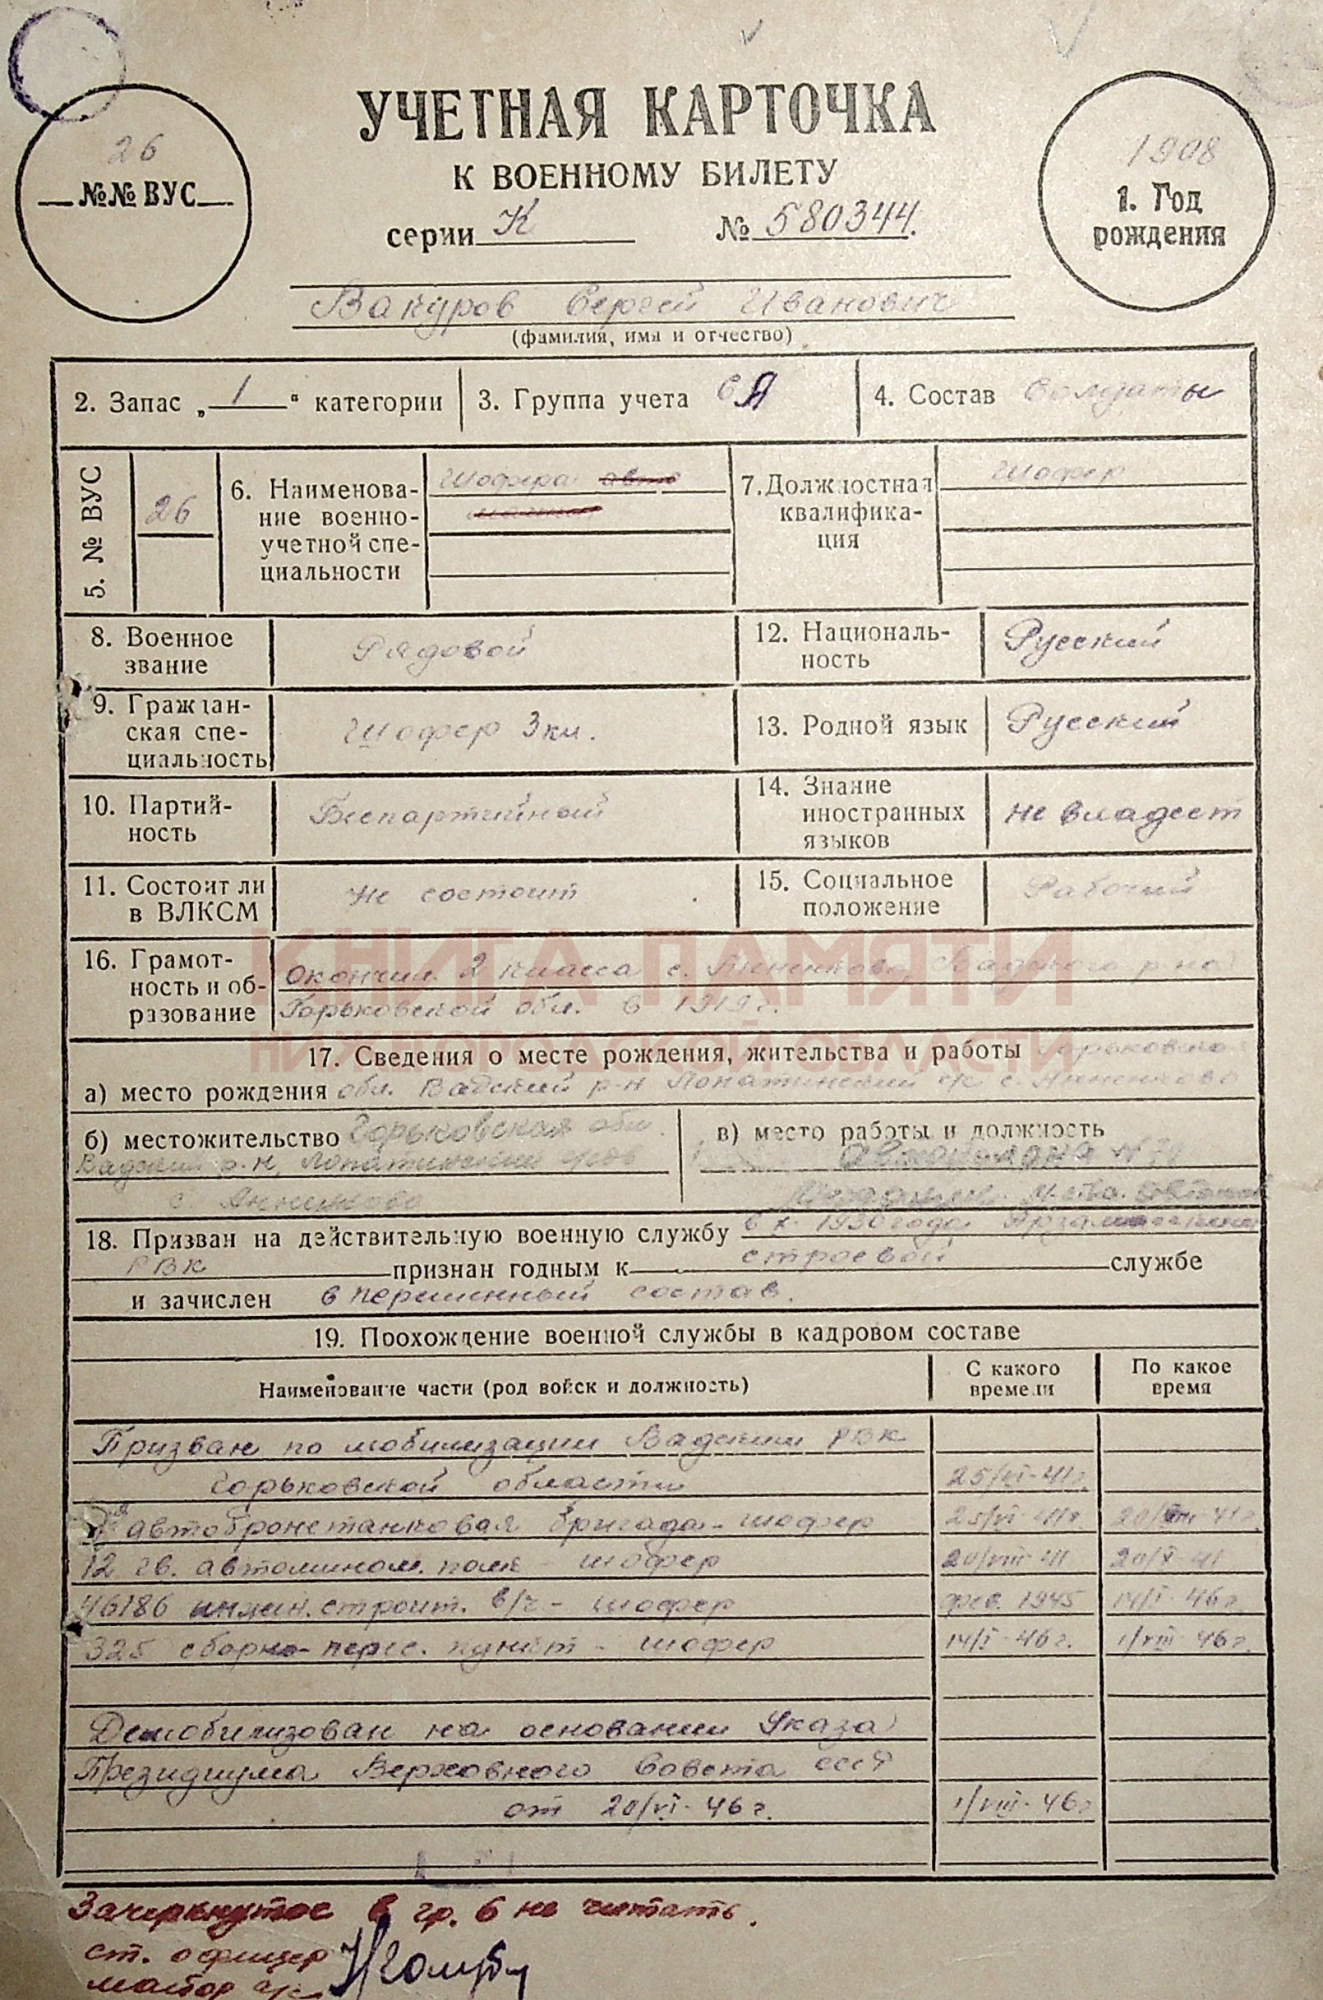 26
№№ ВУС
УЧЕТНАЯ КАРТОЧКА
К ВОЕННОМУ БИЛЕТУ
серии К № 580344.
1908
1. Год
рождения
Вакуров Сергей Иванович
(фамилия, имя и отчество)
2. Запас „ 1 “ категории
3. Группа учета СЯ
4. Состав Солдаты
5. № ВУС
26
6. Наименова-
ние военно-
учетной спе-
циальности
Шофера авто
7. Должностная
квалифика-
ция
Шофер
8. Военное
звание
Рядовой
12. Националь-
ность
Русский
9. Граждан-
ская спе-
циальность
Шофер 3 кл.
13. Родной язык
Русский
10. Партий-
ность
Беспартийный
14. Знание
иностранных
языков
не владеет
11. Состоит ли
в ВЛКСМ
Не состоит
15. Социальное
положение
Рабочий
КНИГА ПАМЯТИ
НИЖЕГОРОДСКОЙ ОБЛАСТИ
16. Грамот-
ность и об-
разование
Окончил 2 класса с. Анненково Вадского р-на
Горьковской обл. в 1919 г.
17. Сведения о месте рождения, жительства и работы Горьковская
а) место рождения обл. Вадский р-н Лопатинский с/с с. Анненково
б) местожительство Горьковская обл.
Вадский р-н, Лопатинский
с Анненково
в) место работы и должность
автоколонна
18. Призван на действительную военную службу в X. 1930 года Арзамасским
РВК признан годным к строевой службе
и зачислен в переменный состав.
19. Прохождение военной службы в кадровом составе
Наименование части (род войск и должность)
С какого
времени
По какое
время
Призван по мобилизации Вадским РВК
Горьковской области 25/VI-41г.
автобронетанковая бригада - шофер 25/VI-41г. 20/VIII-41г.
12 гв. автомином. полк - шофер 20/VIII-41 20/X-41
46186 инжен. строит. в/ч - шофер фев. 1945 14/I-46г.
325 сборно-перес. пункт - шофер 14/I-46г. 1/VIII-46г.
Демобилизован на основании Указа
Президиума Верховного Совета СССР
от 20/VI-46г. 1/VIII-46г
Зачеркнутое в гр. 6 не читать.
ст. офицер
майор а/с